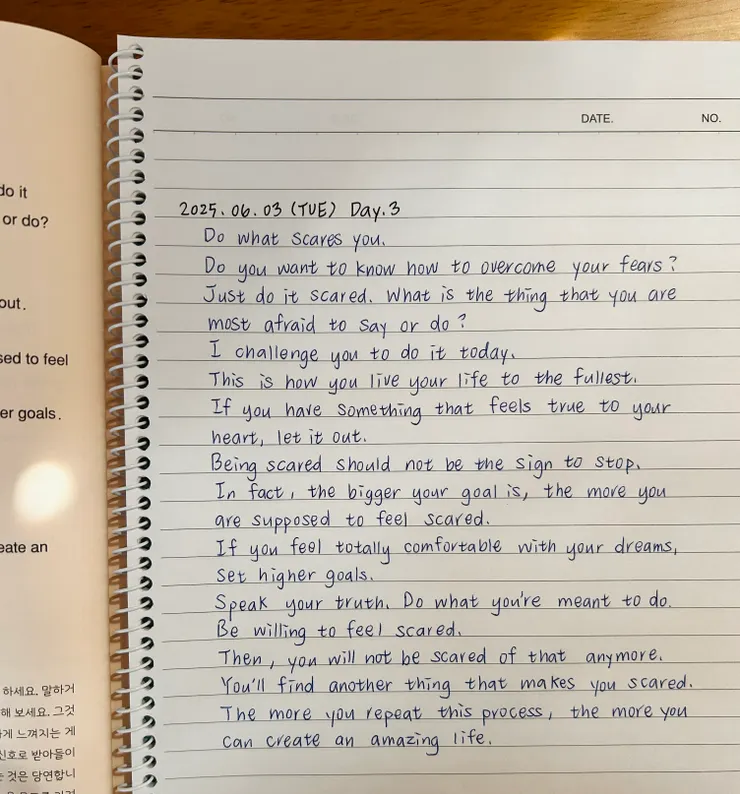 do it
or do?
out.
sed to feel
er goals.
eate an
하세요. 말하거
해 보세요. 그것
게 느껴지는 게
신호로 받아들이
는 것은 당연합니
DATE. NO.
2025. 06. 03 (TUE) Day. 3
Do what scares you.
Do you want to know how to overcome your fears?
Just do it scared. What is the thing that you are
most afraid to say or do?
I challenge you to do it today.
This is how you live your life to the fullest.
If you have something that feels true to your
heart, let it out.
Being scared should not be the sign to stop.
In fact, the bigger your goal is, the more you
are supposed to feel scared.
If you feel totally comfortable with your dreams,
set higher goals.
Speak your truth. Do what you're meant to do.
Be willing to feel scared.
Then, you will not be scared of that anymore.
You'll find another thing that makes you scared.
The more you repeat this process, the more you
can create an amazing life.